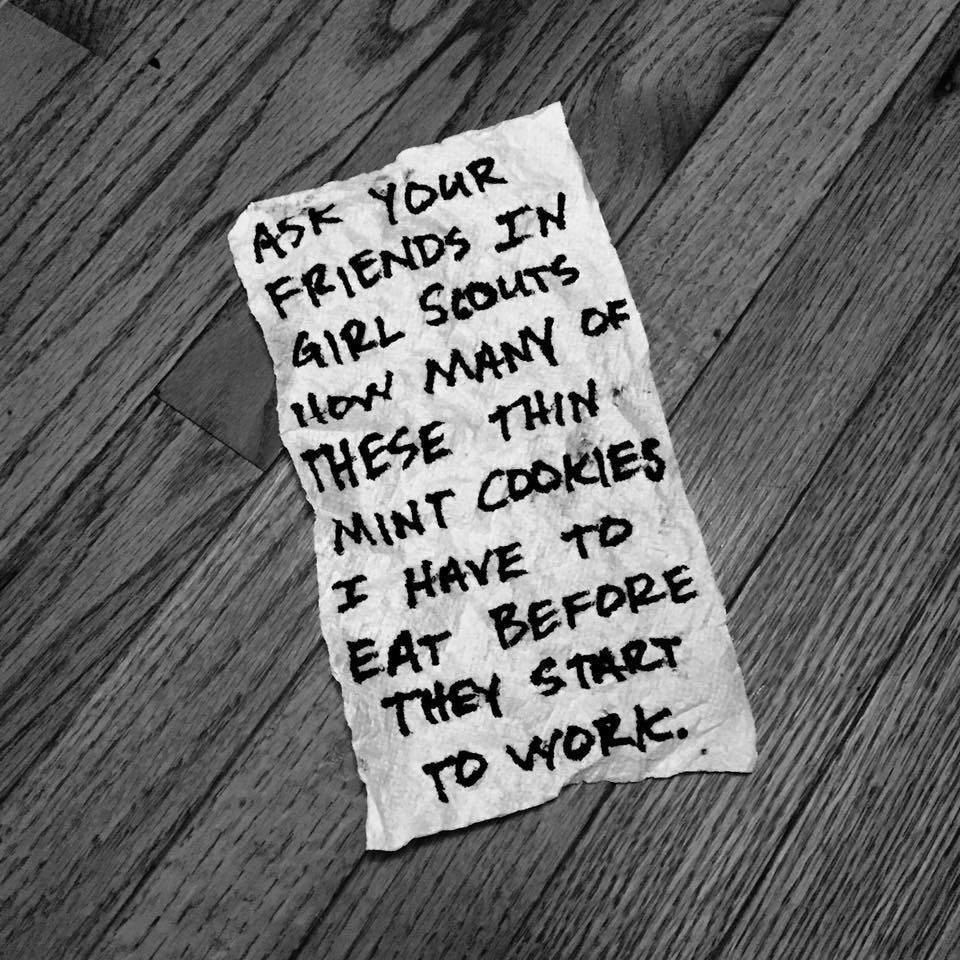 ASK YOUR
FRIENDS IN
GIRL SCOUTS
HOW MANY OF
THESE THIN
MINT COOKIES
I HAVE TO
EAT BEFORE
THEY START
TO WORK.